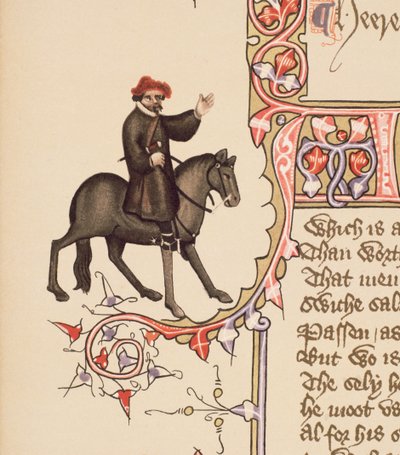 Heere
Which is a
Than wort
That men
Swiche sal
Passen / as
But wo is
The sely h
he moot vs
al for his o